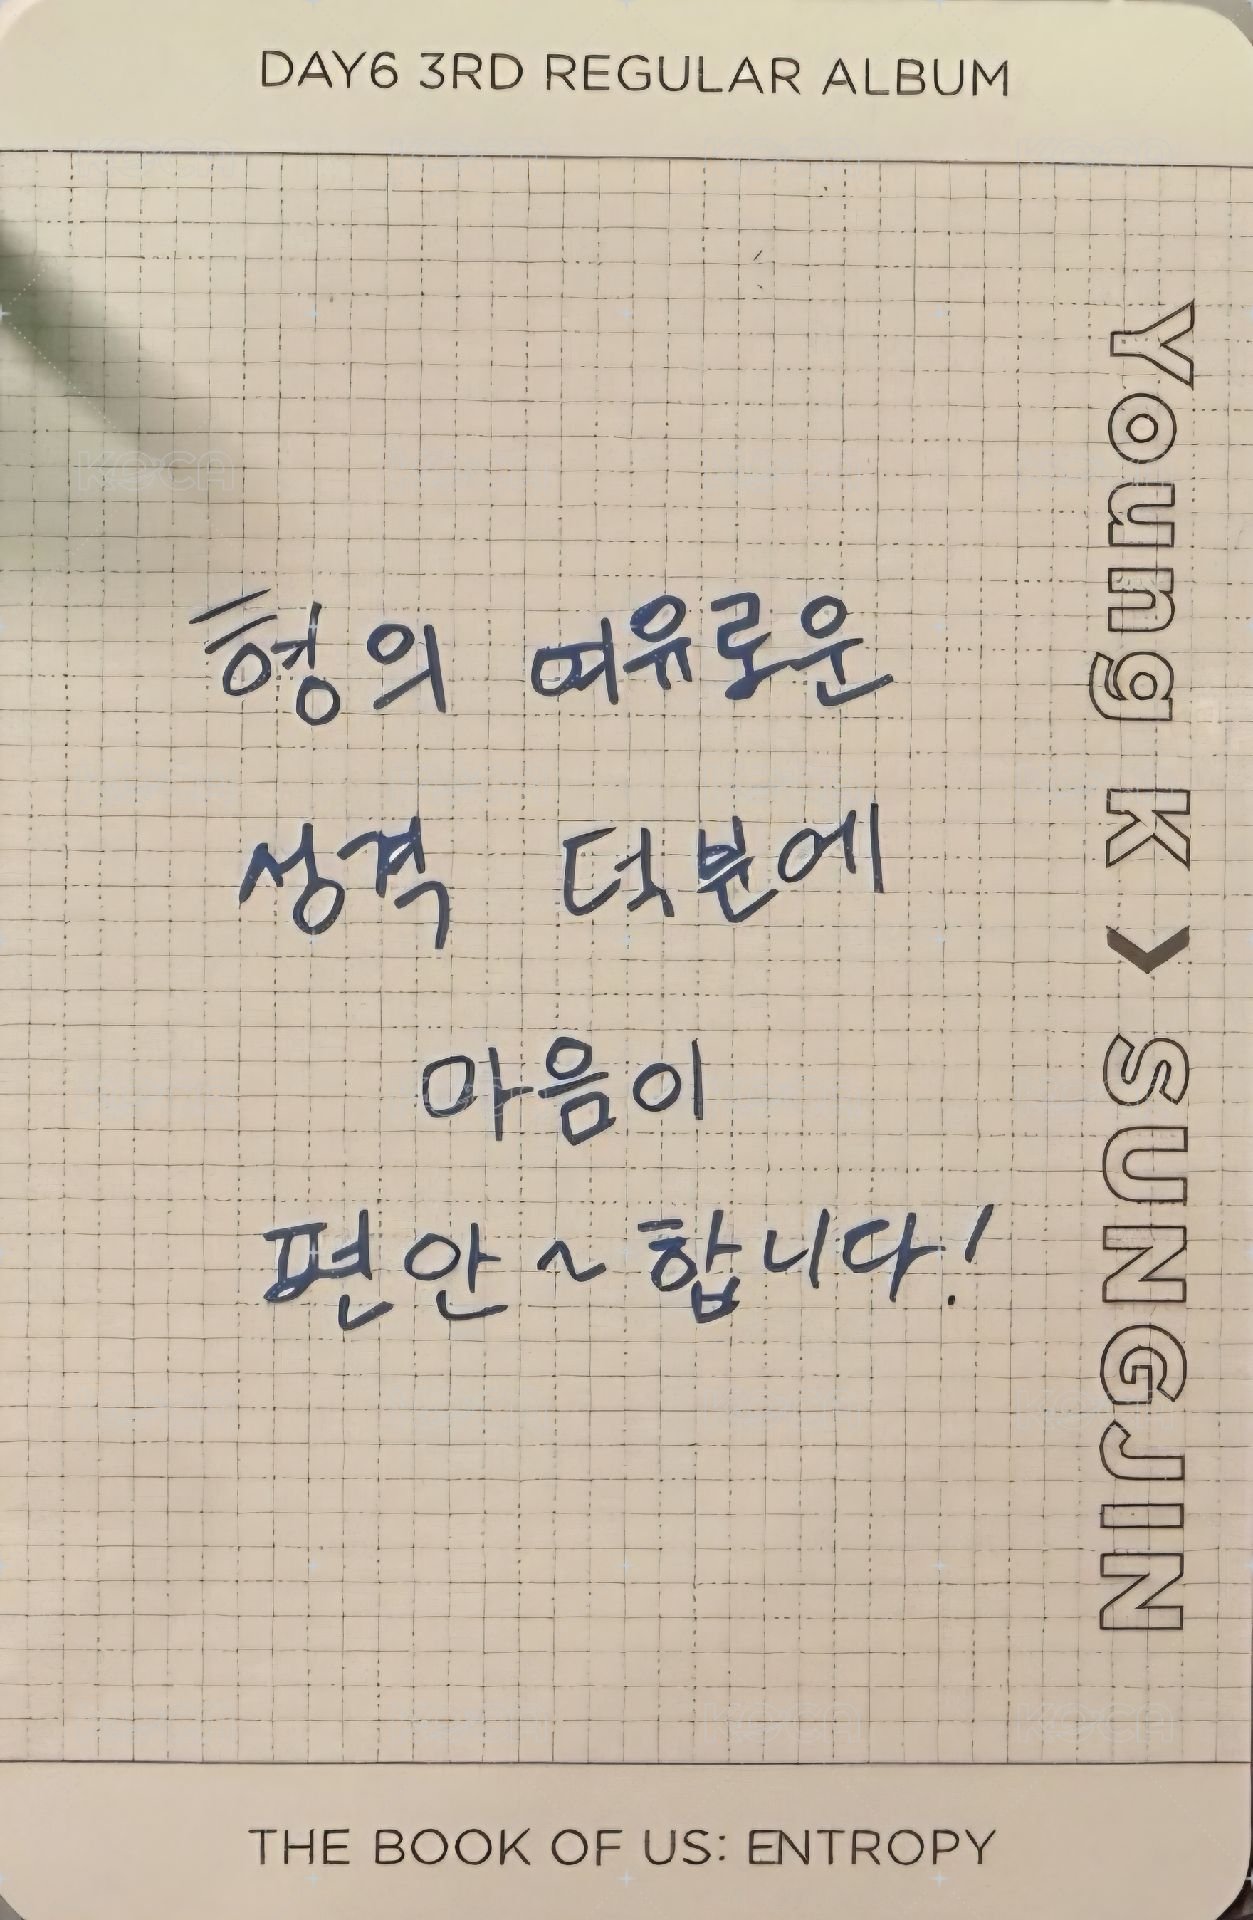 DAY6 3RD REGULAR ALBUM
형의 여유로운
성격 덕분에
마음이
편안~합니다!
Young K > SUNGJIN
THE BOOK OF US: ENTROPY
KOCA